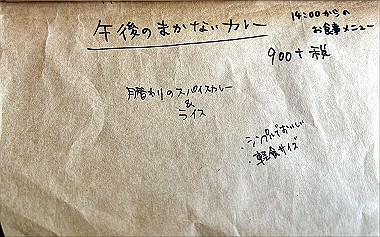 午後のまかないカレー
14:00からの
お食事メニュー
900+税
月替わりのスパイスカレー
&
ライス
・シンプルでおいしい
・軽食サイズ